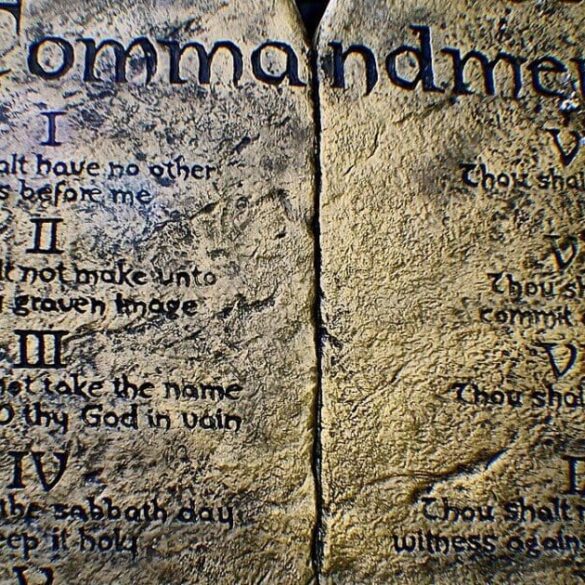 Commandmen
I
alt have no other
s before me
II
lt not make unto
graven image
III
not take the name
thy God in vain
IV
the sabbath day
eep it holy
V
V
Thou sha
V
Thou s
commit
V
Thou shal
I
Thou shalt
witness agains